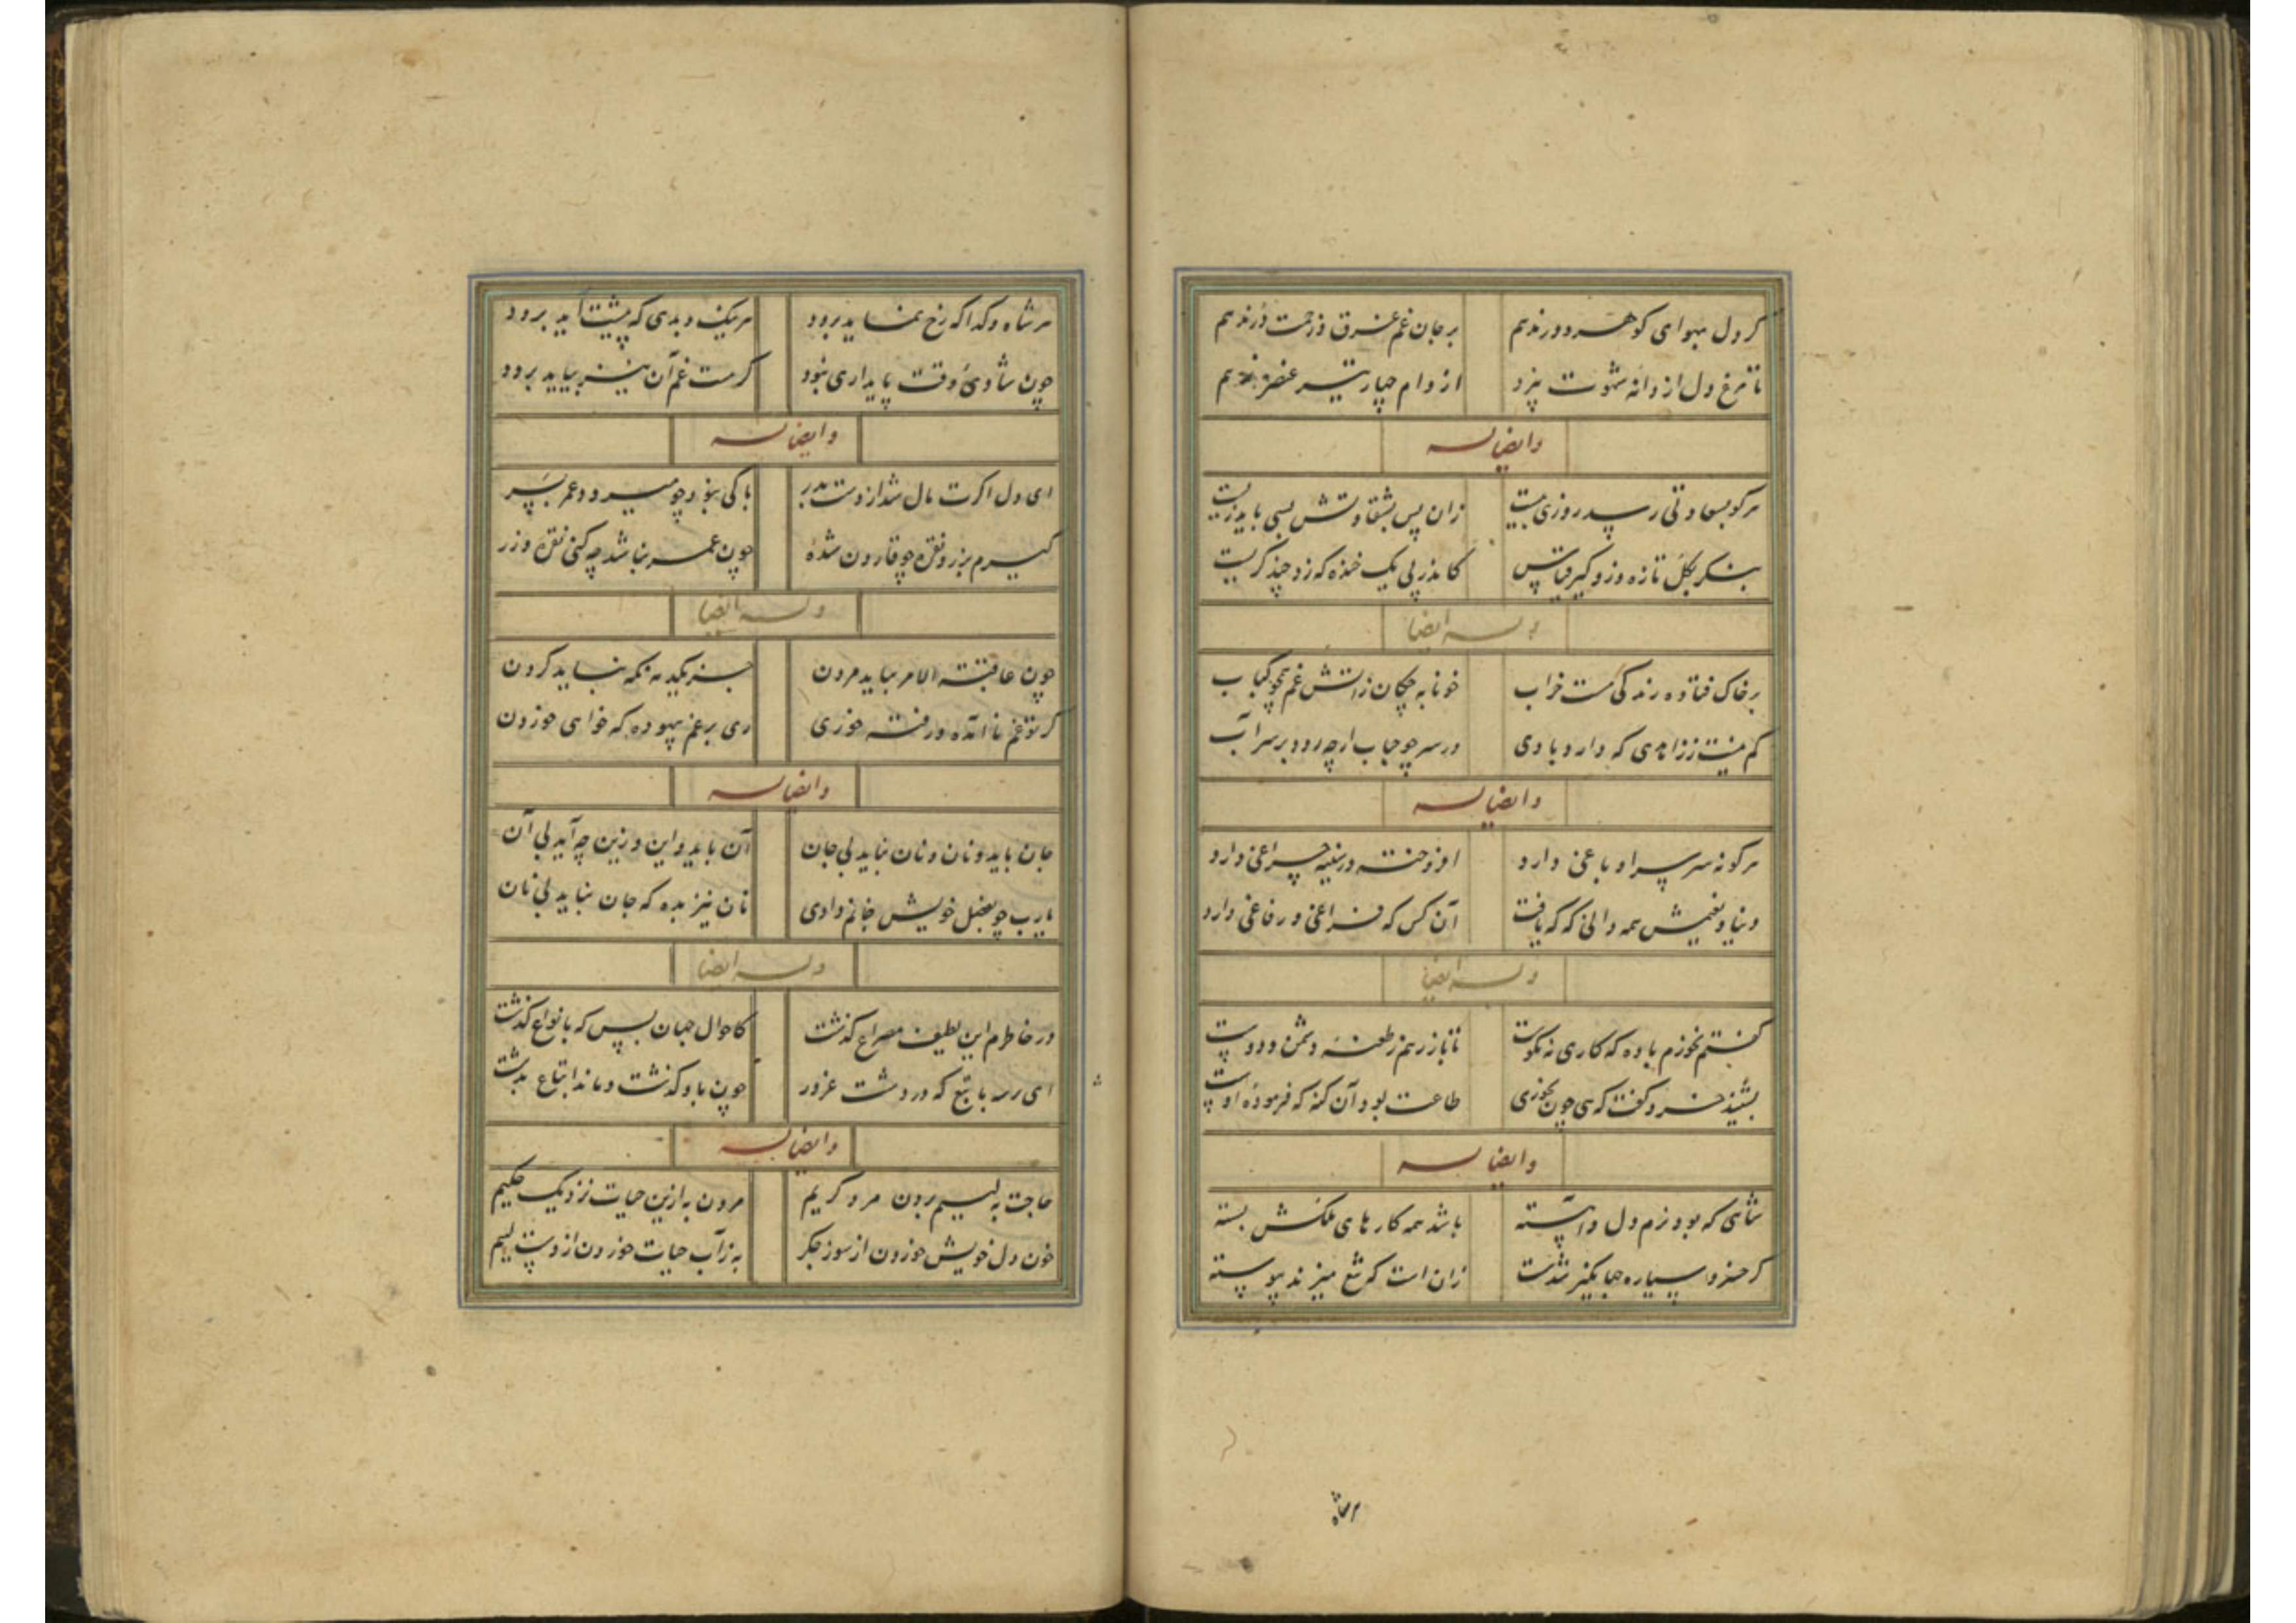 کر دل بهوای کوهر و در ندهم بر جان غم غرق و زحمت در ندهم
تا مرغ دل از دانه شهوت نپرد از دام چهار تیر عنصر نرهم
وایضا له
هرکو بسعادتی رسد روزی بیست زان پس بشقاوتش بسی باید زیست
بنکر بکل تازه وزو کیر قیاس کاندر پی یک خنده که زد چند کریست
وله ایضا
بر خاک فتاده رندکی مست خراب خونابه چکان ز آتش غم همچو کباب
کم نیست ز زاهدی که دارد بادی در سر چو حباب ارچه رود بر سر آب
وایضا له
هرکو نه سر سرا و باغی دارد افروخته در سینه چراغی دارد
دنیا و نعیمش همه دانی که که یافت آن کس که فراغی و رفاغی دارد
وله ایضا
کفتم نخورم باده که کاری نه نکوست تا باز رهم ز طعنه دشمن و دوست
بشنید خرد کفت که هی چون نخوری طاعت بود آن کنه که فرموده اوست
وایضا له
شاهی که بود نرم دل و آهسته باشد همه کارهای ملکش بسته
کر خسرو سیاره جهانکیر شدست زان است که تیغ میزند پیوسته
هر شاه
هر شاه و کدا که رخ نماید برود هر نیک و بدی که پیشت آید برود
چون شادی وقت پایداری نبود کر هست غم آن نیز بیاید برود
وایضا له
ای دل اکرت مال شد از دست بدر باکی نبود چو میرود عمر بسر
کیرم بزر و نقره چو قارون شده چون عمر نباشد چه کنی نقره و زر
وله ایضا
چون عاقبة الامر بباید مردن جز تکیه نه تکیه نباید کردن
کر تو غم ناآمده و رفته خوری ای بر غم بیهوده که خواهی خوردن
وایضا له
جان باید و نان و نان نباید بی جان آن باید و این وزین چه آید بی آن
یارب چو بفضل خویش جانم دادی نان نیز بده که جان نباید بی نان
وله ایضا
در خاطرم این لطیف مصراع کذشت کاحوال جهان بپس که بانواع کذشت
ای رسه با تبع که در دشت غرور چون باد کذشت و ماند اتباع بدشت
وایضا له
حاجت به لئیم بردن مرد کریم مردن به ازین حیات نزدیک حکیم
خون دل خویش خوردن از سوز جکر به ز آب حیات خوردن از دست لئیم